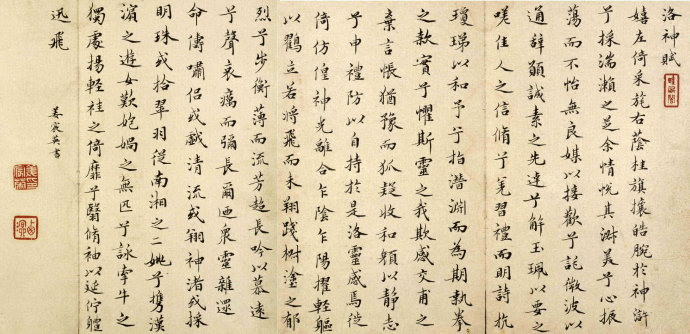 洛神賦
嬉左倚采旄右蔭桂旗攘皓腕於神滸
兮採湍瀨之芝余情悅其淑美兮心振
蕩而不怡無良媒以接歡兮託微波以
通辭願誠素之先達兮解玉珮以要之
嗟佳人之信脩兮羌習禮而明詩抗
瓊珶以和予兮指潛淵而為期執拳
之款實兮懼斯靈之我欺感交甫之
棄言悵猶豫而狐疑收和顏以靜志
兮申禮防以自持於是洛靈感焉徙
倚仿偟神光離合乍陰乍陽擢輕軀
以鶴立若將飛而未翔踐椒塗之郁
烈兮步衡薄而流芳超長吟以慕遠
兮聲哀厲而彌長爾迺眾靈雜遝
命儔嘯侶或戲清流或翔神渚或採
明珠或拾翠羽從南湘之二姚兮攜漢
濱之遊女歎匏媧之無匹兮詠牽牛之
獨處揚輕袿之倚靡兮翳脩袖以延佇軆
迅飛
姜宸英書